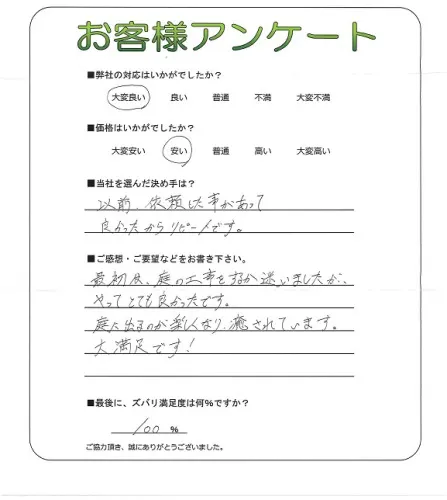 お客様アンケート
■弊社の対応はいかがでしたか?
大変良い 良い 普通 不満 大変不満
■価格はいかがでしたか?
大変安い 安い 普通 高い 大変高い
■当社を選んだ決め手は?
以前、依頼した事があって
良かったからリピートです。
■ご感想・ご要望などをお書き下さい。
最初は、庭の工事をするか迷いましたが、
やってとても良かったです。
庭に出るのが楽しくなり、癒されています。
大満足です!
■最後に、ズバリ満足度は何%ですか?
100 %
ご協力頂き、誠にありがとうございました。